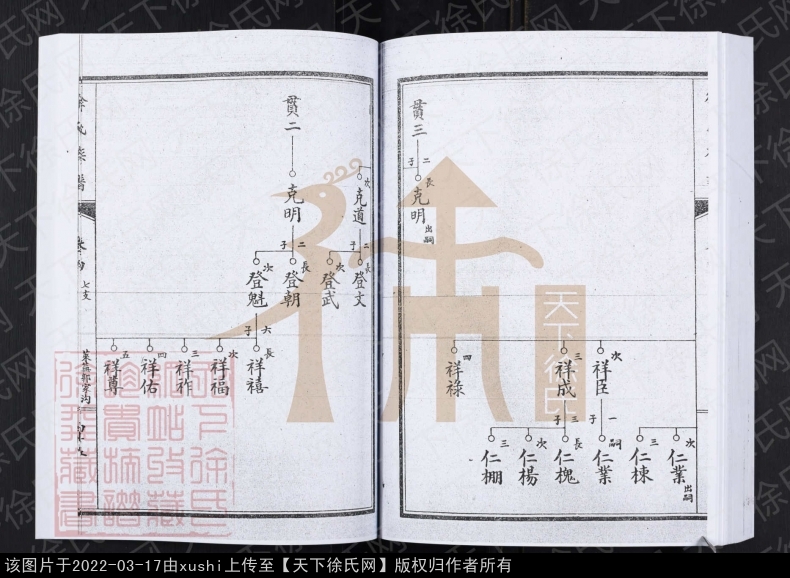 貫三
二子
長
克明
出嗣
次
祥臣
三
祥成
四
祥祿
一子
三子
次
仁業
出嗣
三
仁棟
嗣
仁業
長
仁槐
次
仁楊
三
仁棚
次
克道
二子
長
登文
次
登武
貫二
克明
二子
長
登朝
次
登魁
六子
長
祥禧
次
祥福
三
祥祚
四
祥佑
五
祥尊
七支
天下徐氏
该图片于2022-03-17由xushi上传至【天下徐氏网】版权归作者所有